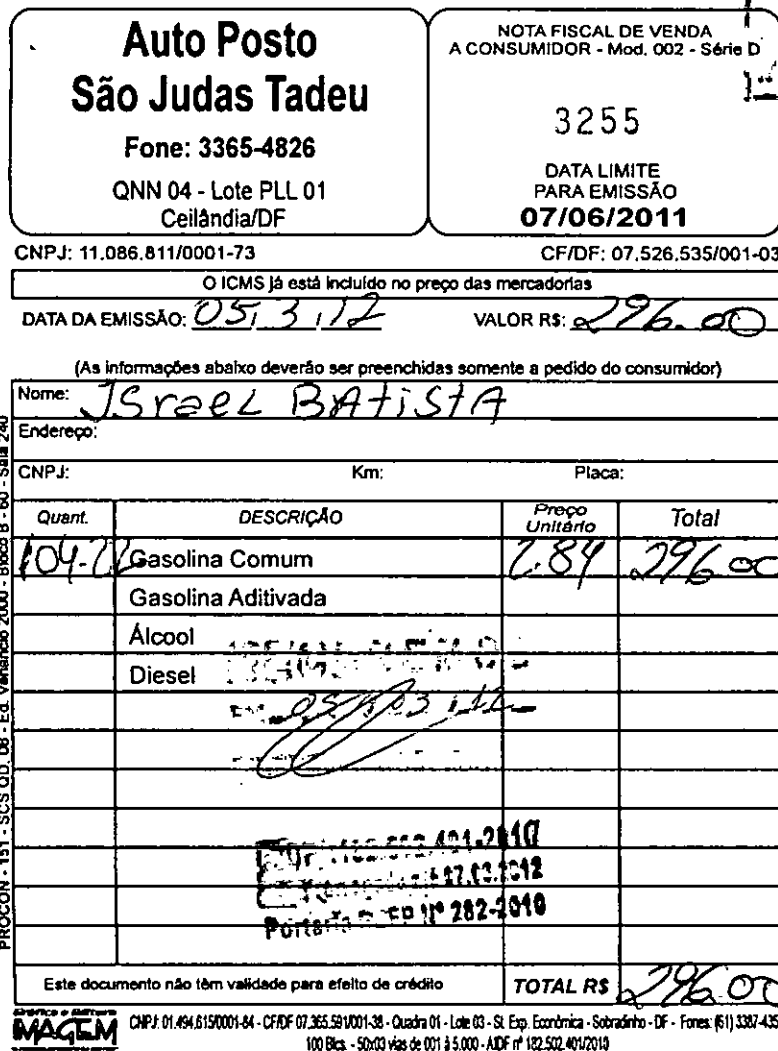 Auto Posto
São Judas Tadeu
Fone: 3365-4826
QNN 04 - Lote PLL 01
Ceilândia/DF
NOTA FISCAL DE VENDA
A CONSUMIDOR - Mod. 002 - Série D
3255
DATA LIMITE
PARA EMISSÃO
07/06/2011
CNPJ: 11.086.811/0001-73 CF/DF: 07.526.535/001-03
O ICMS já está incluído no preço das mercadorias
DATA DA EMISSÃO: 05/3/12 VALOR R$: 296.00
(As informações abaixo deverão ser preenchidas somente a pedido do consumidor)
Nome: Israel Batista
Endereço:
CNPJ: Km: Placa:
Quant. DESCRIÇÃO Preço Unitário Total
104-22 Gasolina Comum 2.84 296.00
Gasolina Aditivada
Álcool
Diesel
05/03/12
17.03.2012
Portaria Nº 282-2010
Este documento não têm validade para efeito de crédito TOTAL R$ 296.00
PROCON - 151 - SCS QD. 08 - Ed. Venâncio 2000 - Bloco B - 60 - Sala 240
Gráfica e Editora
IMAGEM
CNPJ: 01.494.615/0001-84 - CF/DF 07.365.591/001-38 - Quadra 01 - Lote 03 - St. Exp. Econômica - Sobradinho - DF - Fones: (61) 3387-435
100 Blcs. - 50x03 vias de 001 à 5.000 - AIDF nº 182.502.401/2010